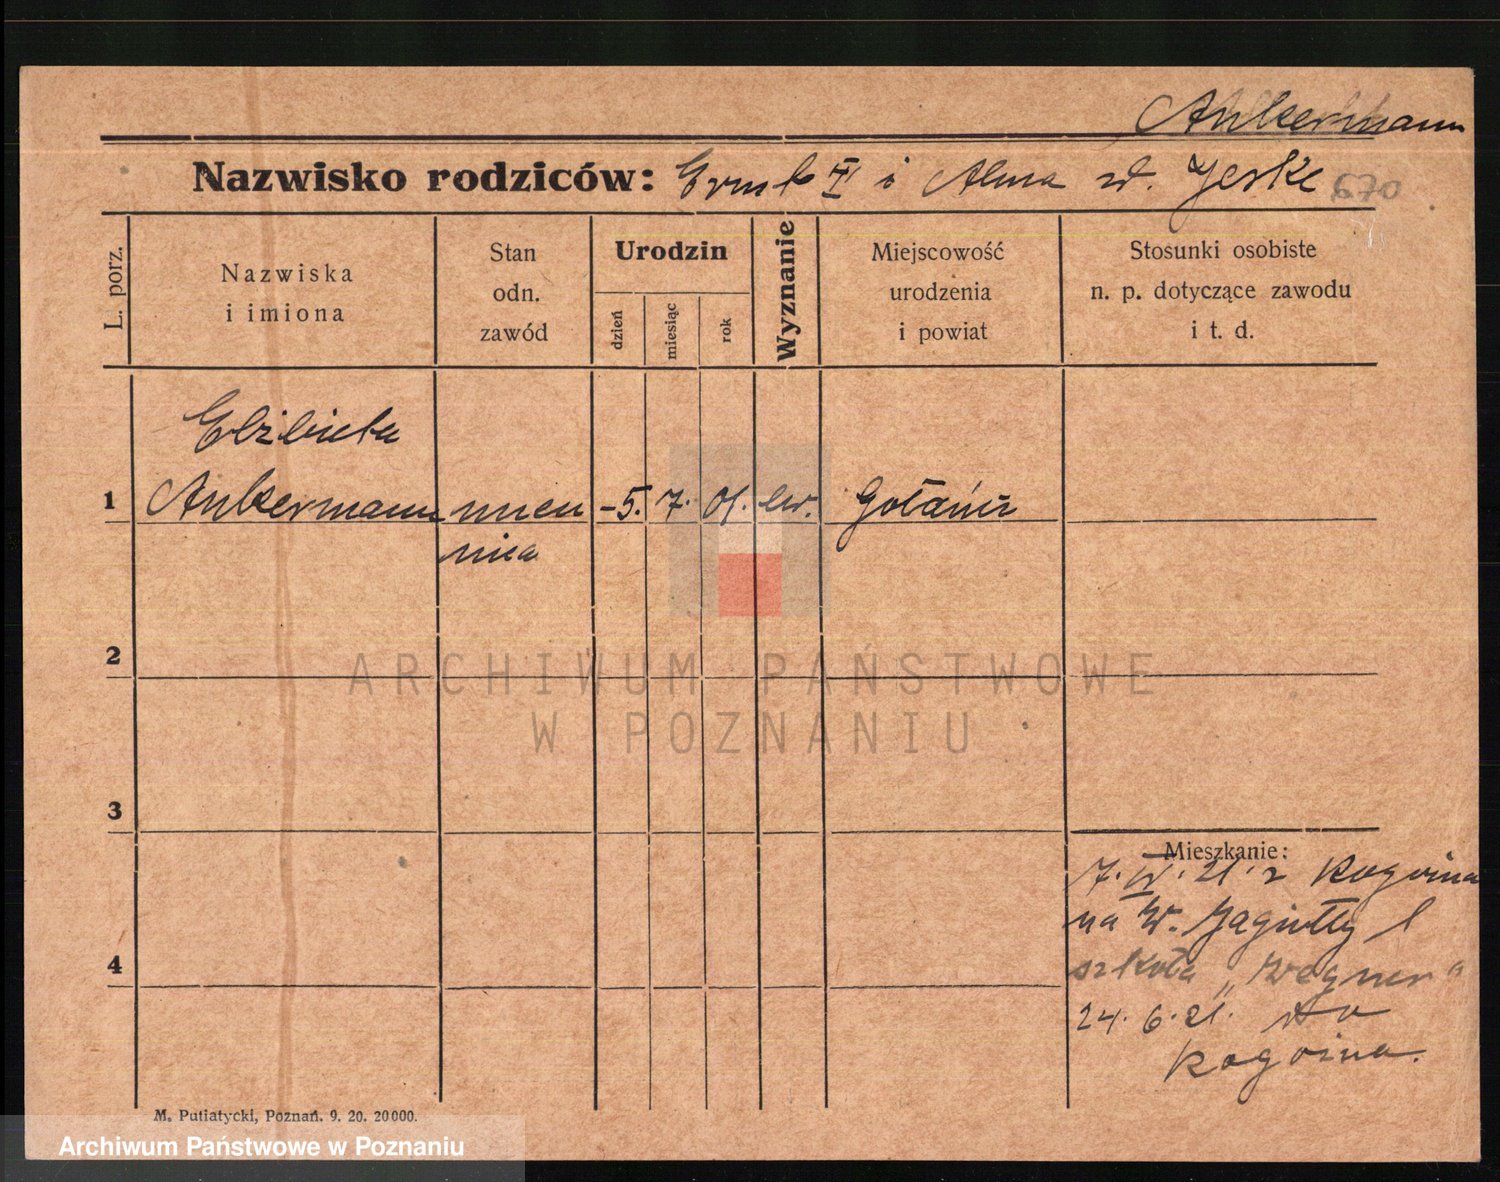 Ankermann
Nazwisko rodziców: Ernst † i Alma zd. Jeske 670
L. porz.
Nazwiska
i imiona
Stan
odn.
zawód
Urodzin
dzień
miesiąc
rok
Wyznanie
Miejscowość
urodzenia
i powiat
Stosunki osobiste
n. p. dotyczące zawodu
i t. d.
Elżbieta
1 Ankermann uczen -5. 7. 01. ew. Gołańcz
nica
2
3
4
Mieszkanie:
7. IV. 21. z Rogoźna
na W. Jagiełły 1
szkoła „Wegner“
24. 6. 21. do
Rogoźna.
M. Putiatycki, Poznań. 9. 20. 20000.
ARCHIWUM PAŃSTWOWE
W POZNANIU
Archiwum Państwowe w Poznaniu